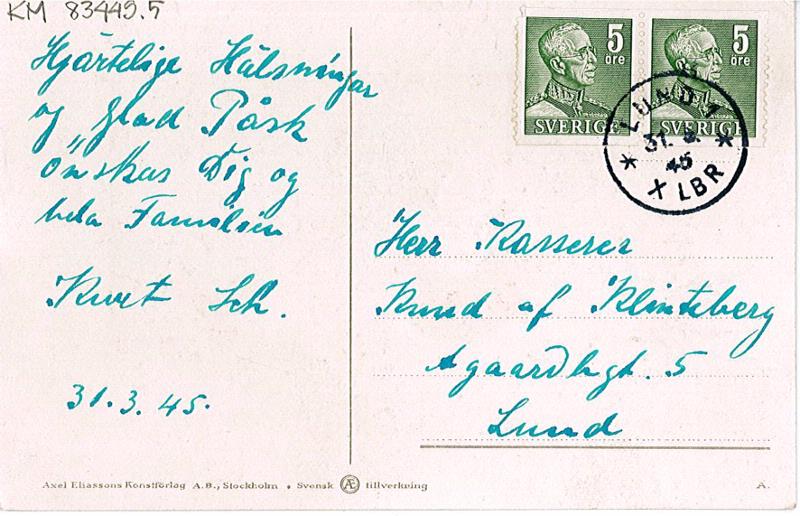 KM 83449.5
Hjärtelige Hälsningar
og „glad Påsk
önskas Dig og
hela Familien
Kurt Sch.
31.3.45.
5
öre
SVERIGE
5
öre
SVERIGE
LUND 1
31. 3.
45
X LBR
Herr Kasserer
Knud af Klinteberg
Agaardhgt. 5
Lund
Axel Eliassons Konstförlag A.B., Stockholm • Svensk Æ tillverkning
A.